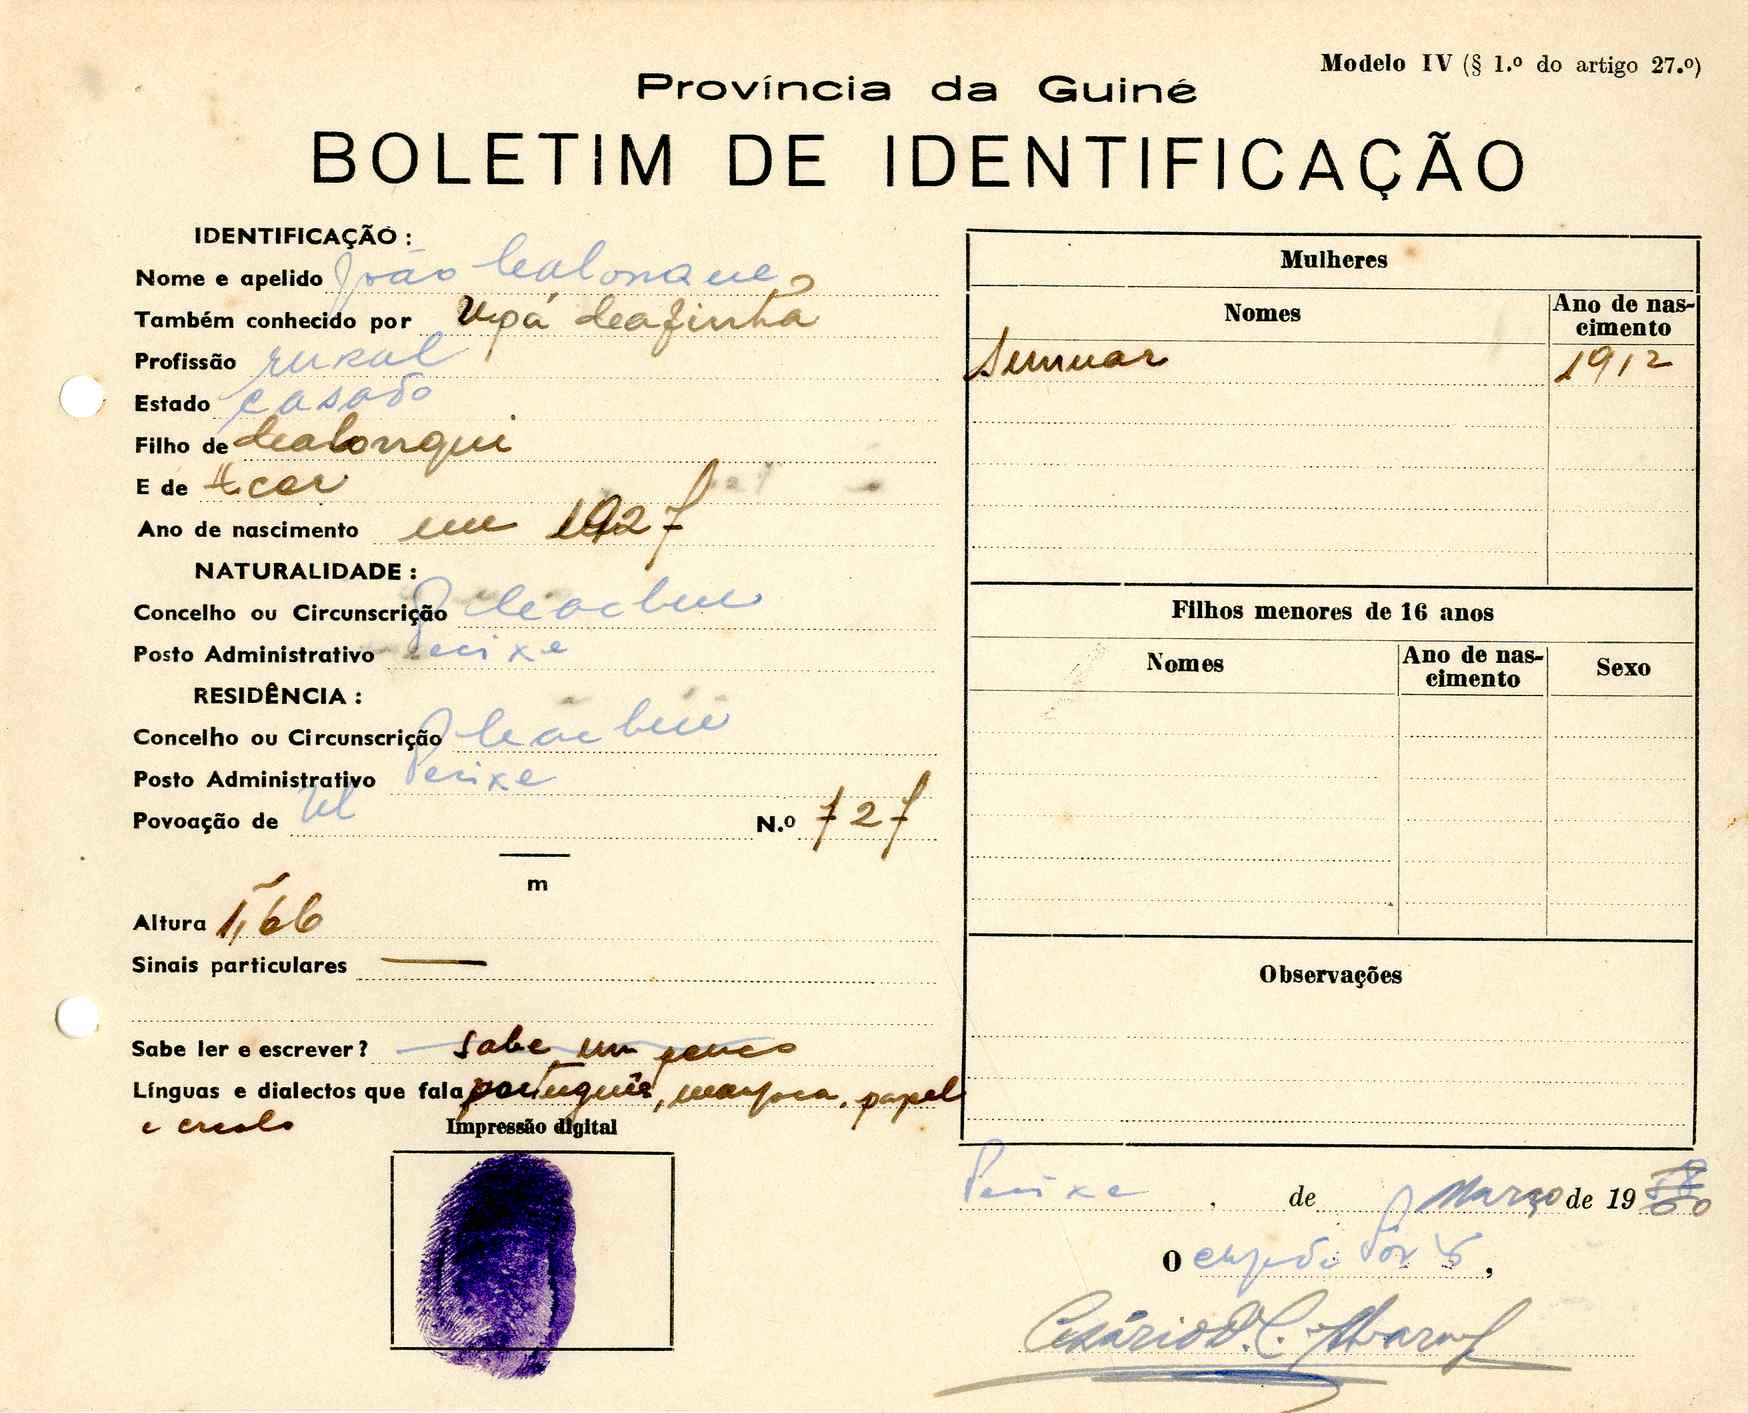 Modelo IV (§ 1.º do artigo 27.º)
Província da Guiné
BOLETIM DE IDENTIFICAÇÃO
IDENTIFICAÇÃO :
Nome e apelido João
Também conhecido por
Profissão rural
Estado casado
Filho de
E de
Ano de nascimento em 1927
NATURALIDADE :
Concelho ou Circunscrição Cacheu
Posto Administrativo Pecixe
RESIDÊNCIA :
Concelho ou Circunscrição Cacheu
Posto Administrativo Pecixe
Povoação de N.º 727
m
Altura 1,66
Sinais particulares —
Sabe ler e escrever? sabe um pouco
Línguas e dialectos que fala português, manjaca, papel
e creolo
Impressão digital
Mulheres
Nomes Ano de nascimento
1912
Filhos menores de 16 anos
Nomes Ano de nascimento Sexo
Observações
Pecixe, de Março de 19 60
O
Cesário D. C. Alvarenga